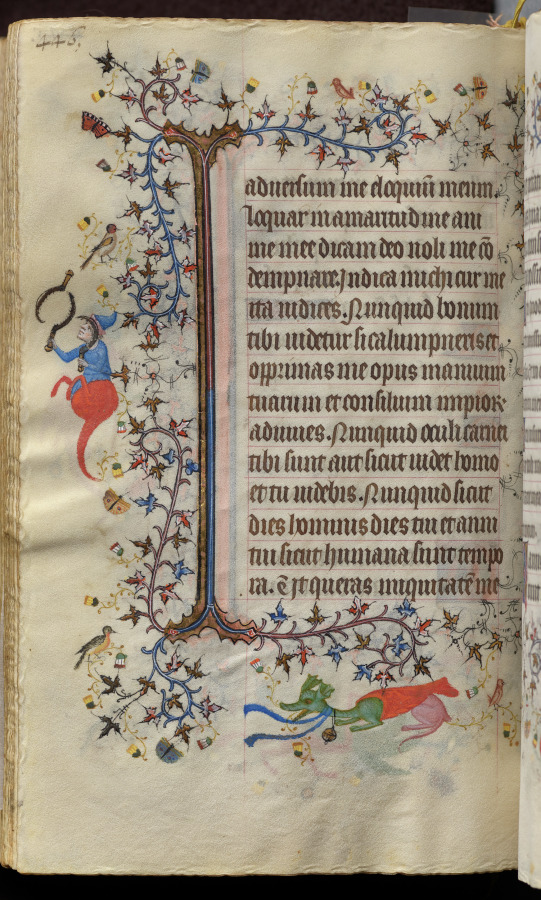 445.
aduersum me eloquiū meum,
loquar in amaritudine ani
me mee dicam deo noli me cō
dempnare. Indica michi cur me
ita iudices. Nunquid bonum
tibi uidetur si calumpneris et
opprimas me opus manuum
tuarum et consilium impior
adiuues. Nunquid oculi carnei
tibi sunt aut sicut uidet homo
et tu uidebis. Nunquid sicut
dies hominis dies tui et anni
tui sicut humana sunt tempo
ra. ē ut queras iniquitatē me